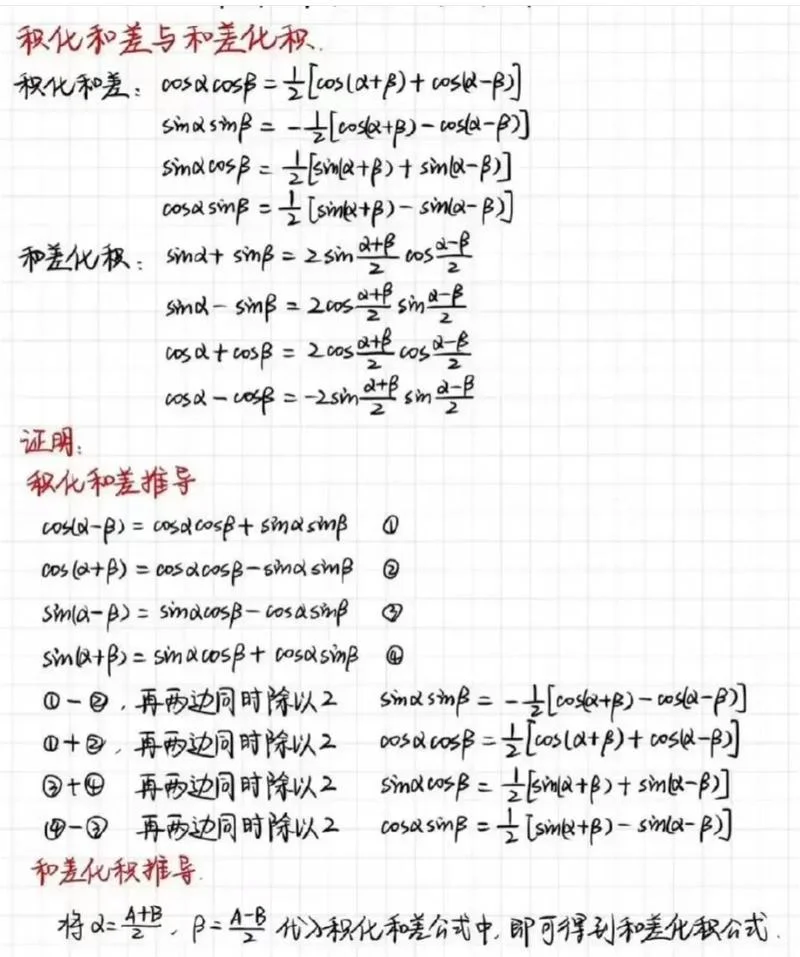 积化和差与和差化积.
积化和差: cosαcosβ = 1/2[cos(α+β) + cos(α-β)]
sinαsinβ = -1/2[cos(α+β) - cos(α-β)]
sinαcosβ = 1/2[sin(α+β) + sin(α-β)]
cosαsinβ = 1/2[sin(α+β) - sin(α-β)]
和差化积: sinα + sinβ = 2sin (α+β)/2 cos (α-β)/2
sinα - sinβ = 2cos (α+β)/2 sin (α-β)/2
cosα + cosβ = 2cos (α+β)/2 cos (α-β)/2
cosα - cosβ = -2sin (α+β)/2 sin (α-β)/2
证明:
积化和差推导
cos(α-β) = cosαcosβ + sinαsinβ ①
cos(α+β) = cosαcosβ - sinαsinβ ②
sin(α-β) = sinαcosβ - cosαsinβ ③
sin(α+β) = sinαcosβ + cosαsinβ ④
①-②, 再两边同时除以2 sinαsinβ = -1/2[cos(α+β) - cos(α-β)]
①+②, 再两边同时除以2 cosαcosβ = 1/2[cos(α+β) + cos(α-β)]
③+④ 再两边同时除以2 sinαcosβ = 1/2[sin(α+β) + sin(α-β)]
④-③ 再两边同时除以2 cosαsinβ = 1/2[sin(α+β) - sin(α-β)]
和差化积推导.
将α=(A+B)/2, β=(A-B)/2 代入积化和差公式中, 即可得到和差化积公式.